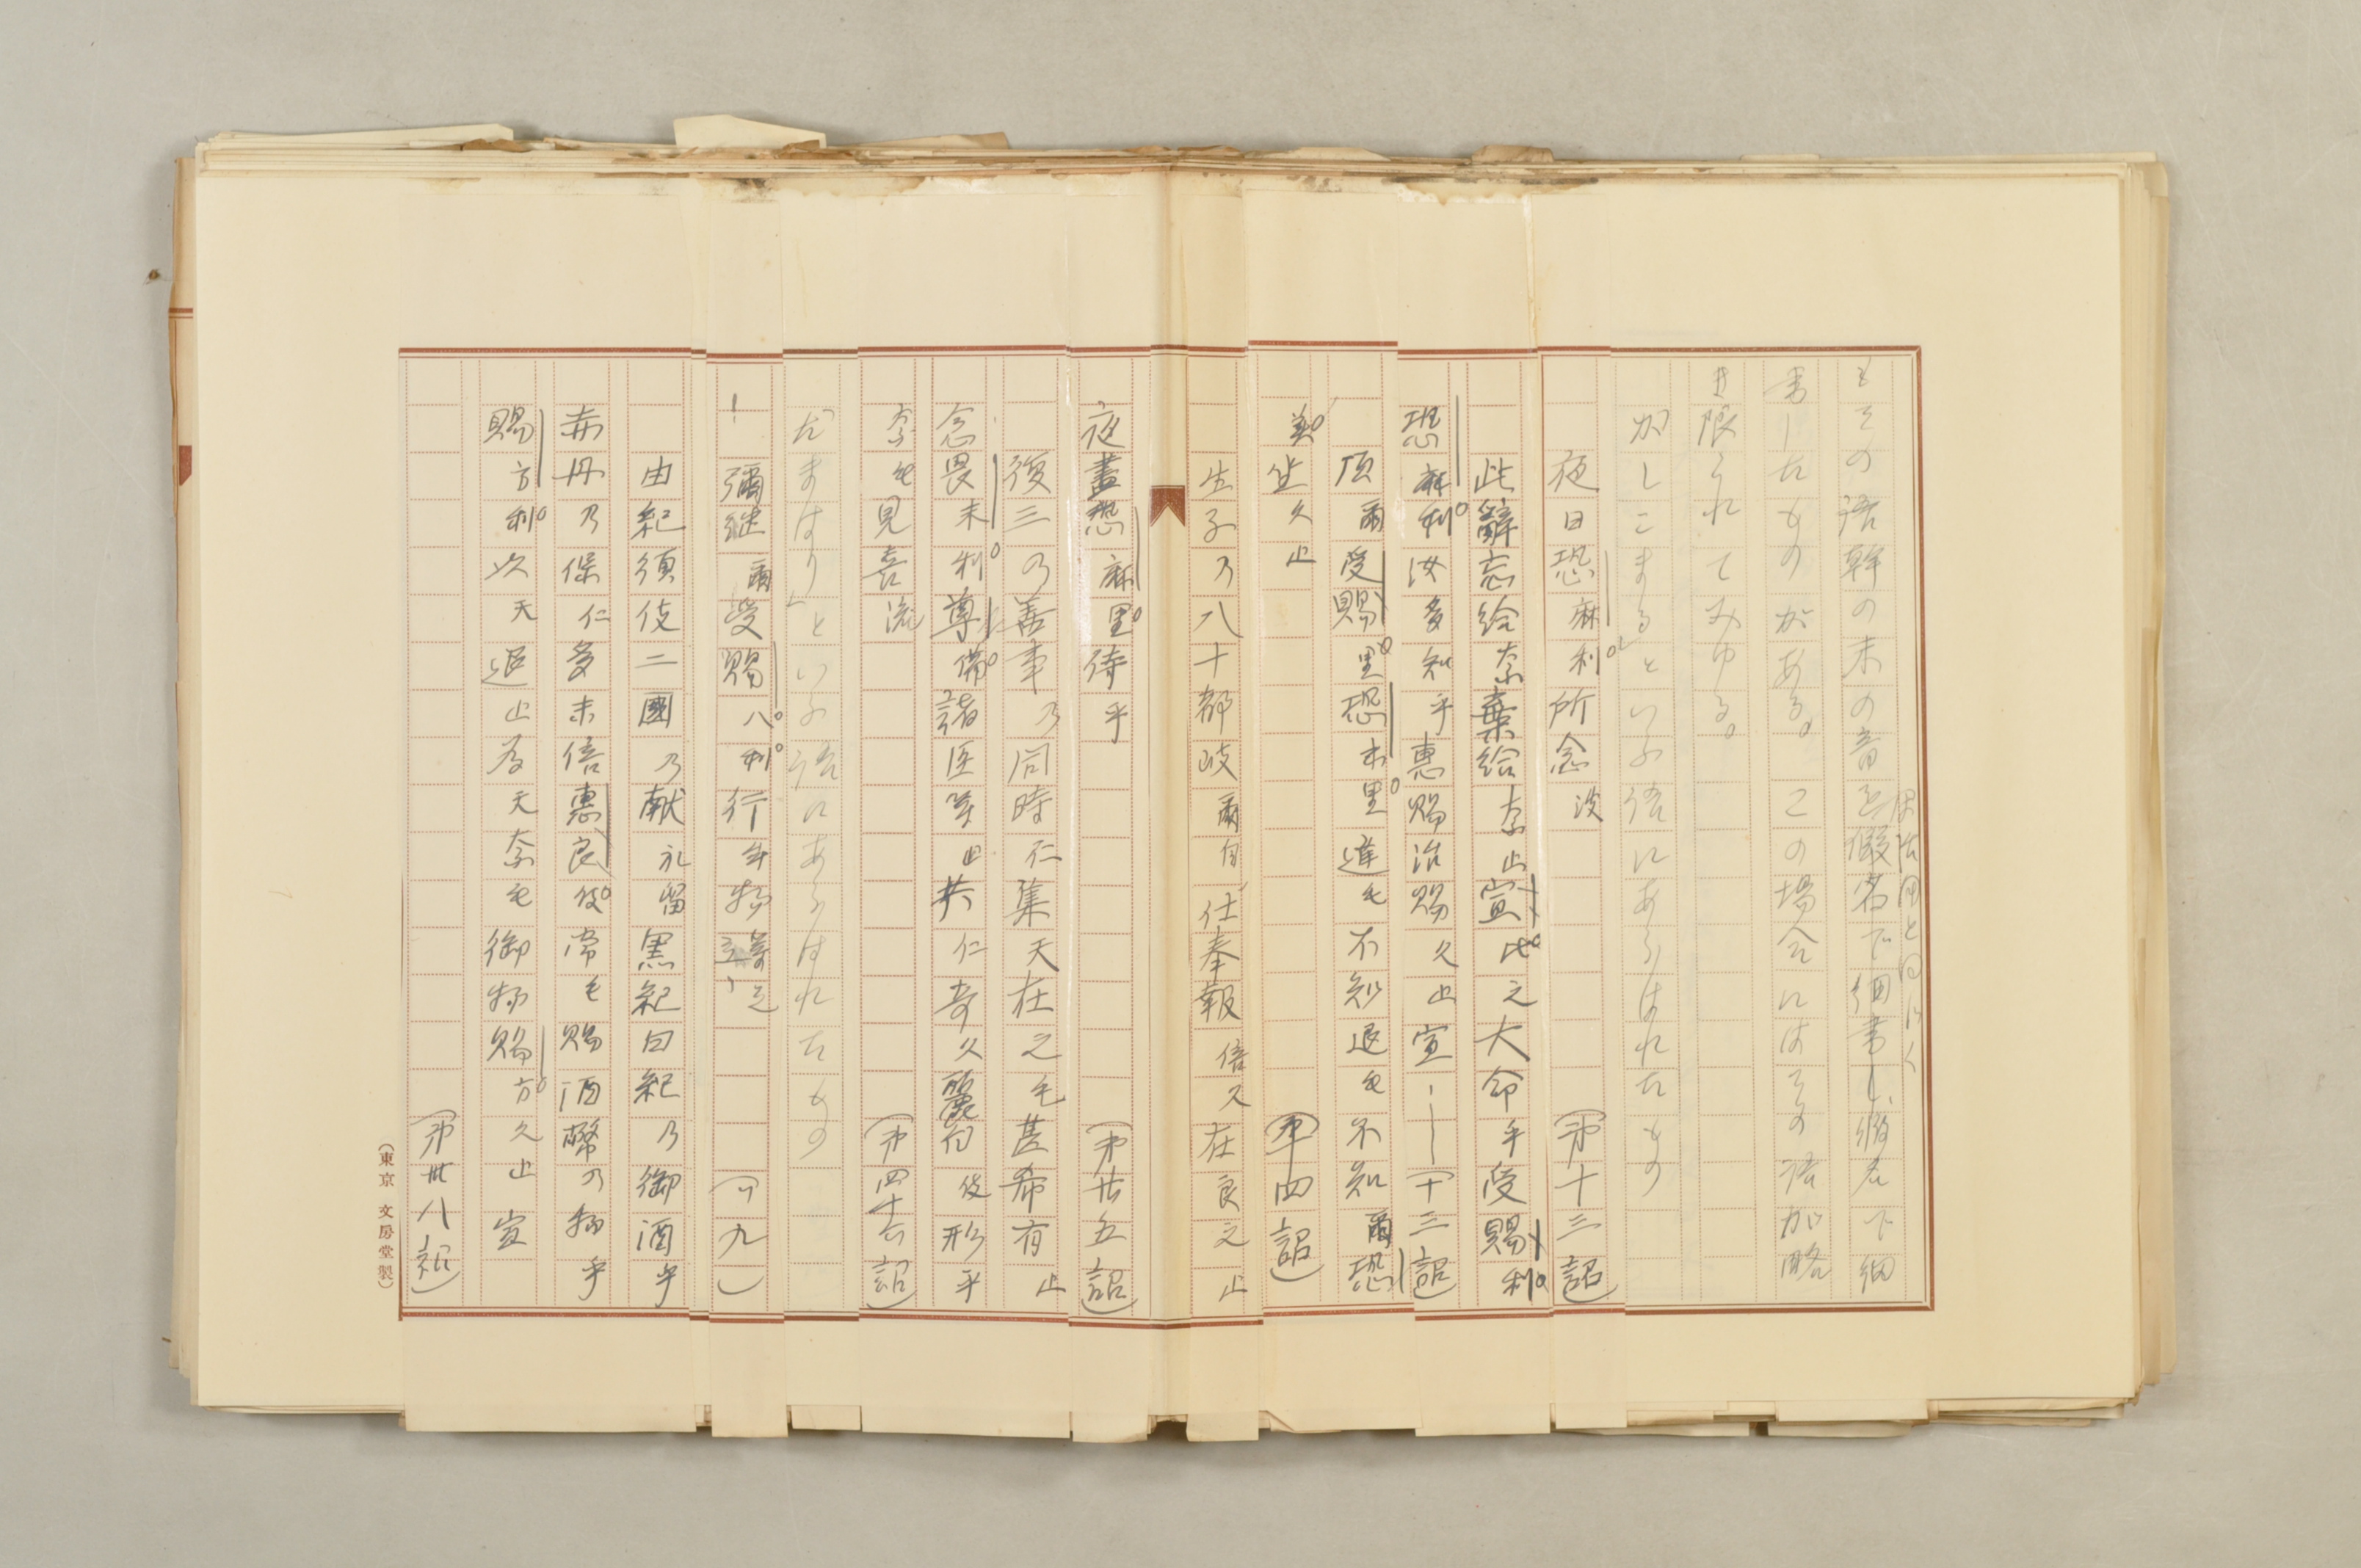 もその語幹の末の音を假名で細書し、猶在下細
活用と同じく
書したものがある。この場合にはその語が略
せ限られてみゆる。
「かしこまる」といふ語にあらはれたもの
夜日恐麻利所念波 (第十三詔)
此辭忘給奈棄給奈止宣比之大命乎受賜利
恐麻利汝多知乎惠賜治賜久止宣 (十三詔)
頂爾受賜里恐末里進毛不知退毛不知爾恐
美坐久止 (第四詔)
生子乃八十都岐爾自仕奉報倍久在良之止
夜晝恐麻里侍乎 (第廿五詔)
復三乃善事乃同時仁集天在之毛甚希有止
念畏末利尊備諸臣等止共仁奇久麗白伎形乎
奈毛見喜流 (第四十六詔)
「たまはり」といふ語にあらはれたもの
彌継爾受賜八利行牟物 (九)
由紀須伎二國乃献礼留黒紀白紀乃御酒乎
赤丹乃保仁多末倍惠良伎常毛賜酒幣乃物乎
賜方利以天退止為天奈毛御物賜方久止宣
(第卅八詔)
(東京 文房堂製)